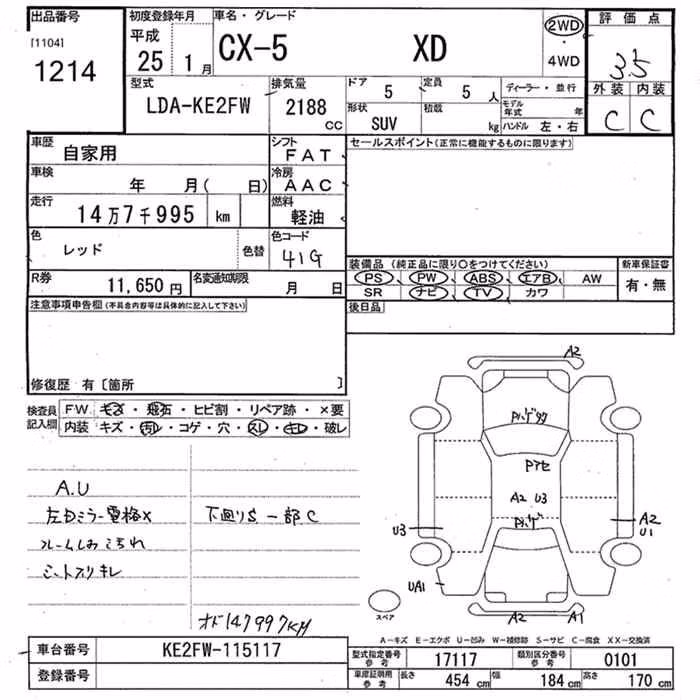 出品番号 初度登録年月 車名・グレード 評価点
[1104] 平成 CX-5 XD 2WD
1214 25 1月 4WD 3.5
型式 排気量 ドア 定員 ディーラー・並行 外装 内装
LDA-KE2FW 2188 CC 5 5人 モデル年式 年 C C
形状 積載 ハンドル 左・右
SUV kg
車歴 自家用 シフト FAT セールスポイント(正常に機能するものに限ります)
車検 年 月( 日) 冷房 AAC
走行 14万7千995 km 燃料 軽油
色 レッド 色替 色コード 41G
装備品(純正品に限り○をつけてください) 新車保証書
R券 11,650円 名変通知期限 月 日 PS PW ABS エアB AW 有・無
SR ナビ TV カワ
注意事項申告欄(不具合内容等は具体的に記入して下さい) 後日品
修復歴 有[箇所 ]
検査員記入欄 FW キズ・飛石・ヒビ割・リペア跡・×要
内装 キズ・汚レ・コゲ・穴・スレ・キレ・破レ
A2
Pハゲタク
Pアセ
A2 U3
Pハゲ
U3
A2
U1
UA1
A2
A1
スペア
A.U
左Dミラー電格× 下廻りS 一部C
フレームしおこちれ
シートスリキレ
オド147997KM
A-キズ E-エクボ U-凹み W-補修跡 S-サビ C-腐食 XX-交換済
車台番号 KE2FW-115117
登録番号
型式指定番号 参考 17117 類別区分番号 参考 0101
車庫証明用 参考 長さ 454cm 幅 184cm 高さ 170cm